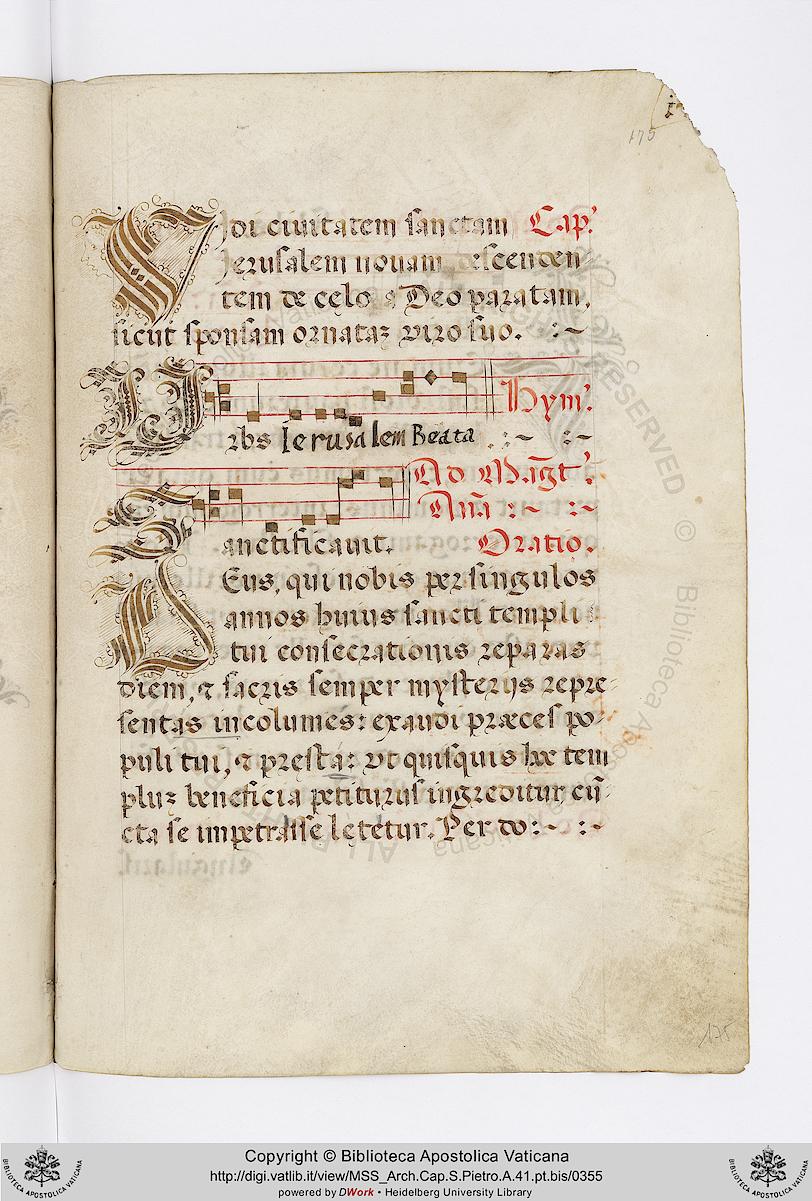 175
Vidi ciuitatem sanctam Cap.
Jerusalem nouam descenden
tem de celo a Deo paratam,
sicut sponsam ornataz viro suo. :~
Hym.
Vrbs Ierusalem Beata . :~ :~
Ad Magt.
Ana :~ :~
Sanctificauit. Oratio.
DEus, qui nobis per singulos
annos huius sancti templi
tui consecrationis reparas
diem, & sacris semper mysterijs repre-
sentas incolumes: exaudi præces po-
puli tui, & presta: vt quisquis hoc tem
pluz beneficia petiturus ingreditur, cu-
cta se impetrasse letetur. Per do :~ :~
175
ALL RIGHTS RESERVED © Biblioteca Apostolica Vaticana
Copyright © Biblioteca Apostolica Vaticana
http://digi.vatlib.it/view/MSS_Arch.Cap.S.Pietro.A.41.pt.bis/0355
powered by DWork • Heidelberg University Library
BIBLIOTECA APOSTOLICA VATICANA
BIBLIOTECA APOSTOLICA VATICANA